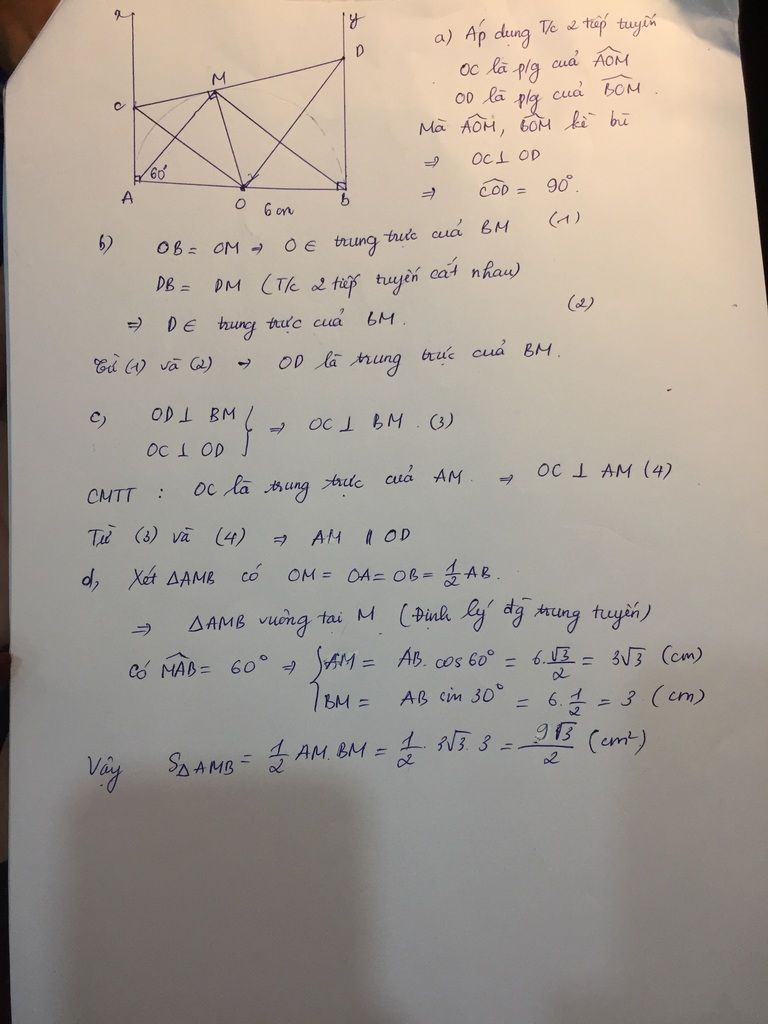 x
y
D
M
C
60°
A
O
B
6 cm
a) Áp dụng T/c 2 tiếp tuyến
OC là p/g của AOM
OD là p/g của BOM.
Mà AOM, BOM kề bù
⇒ OC ⊥ OD
⇒ COD = 90°.
b) OB = OM ⇒ O ∈ trung trực của BM (1)
DB = DM (T/c 2 tiếp tuyến cắt nhau)
⇒ D ∈ trung trực của BM. (2)
Từ (1) và (2) ⇒ OD là trung trực của BM.
c, OD ⊥ BM
OC ⊥ OD } ⇒ OC ⊥ BM. (3)
CMTT : OC là trung trực của AM. ⇒ OC ⊥ AM (4)
Từ (3) và (4) ⇒ AM ∥ OD
d, Xét ΔAMB có OM = OA = OB = 1/2 AB.
⇒ ΔAMB vuông tại M (Định lý đg trung tuyến)
Có MAB = 60° ⇒ { AM = AB. cos 60° = 6. √3/2 = 3√3 (cm)
BM = AB sin 30° = 6. 1/2 = 3 (cm)
Vậy SΔAMB = 1/2 AM. BM = 1/2 . 3√3. 3 = 9√3/2 (cm²)